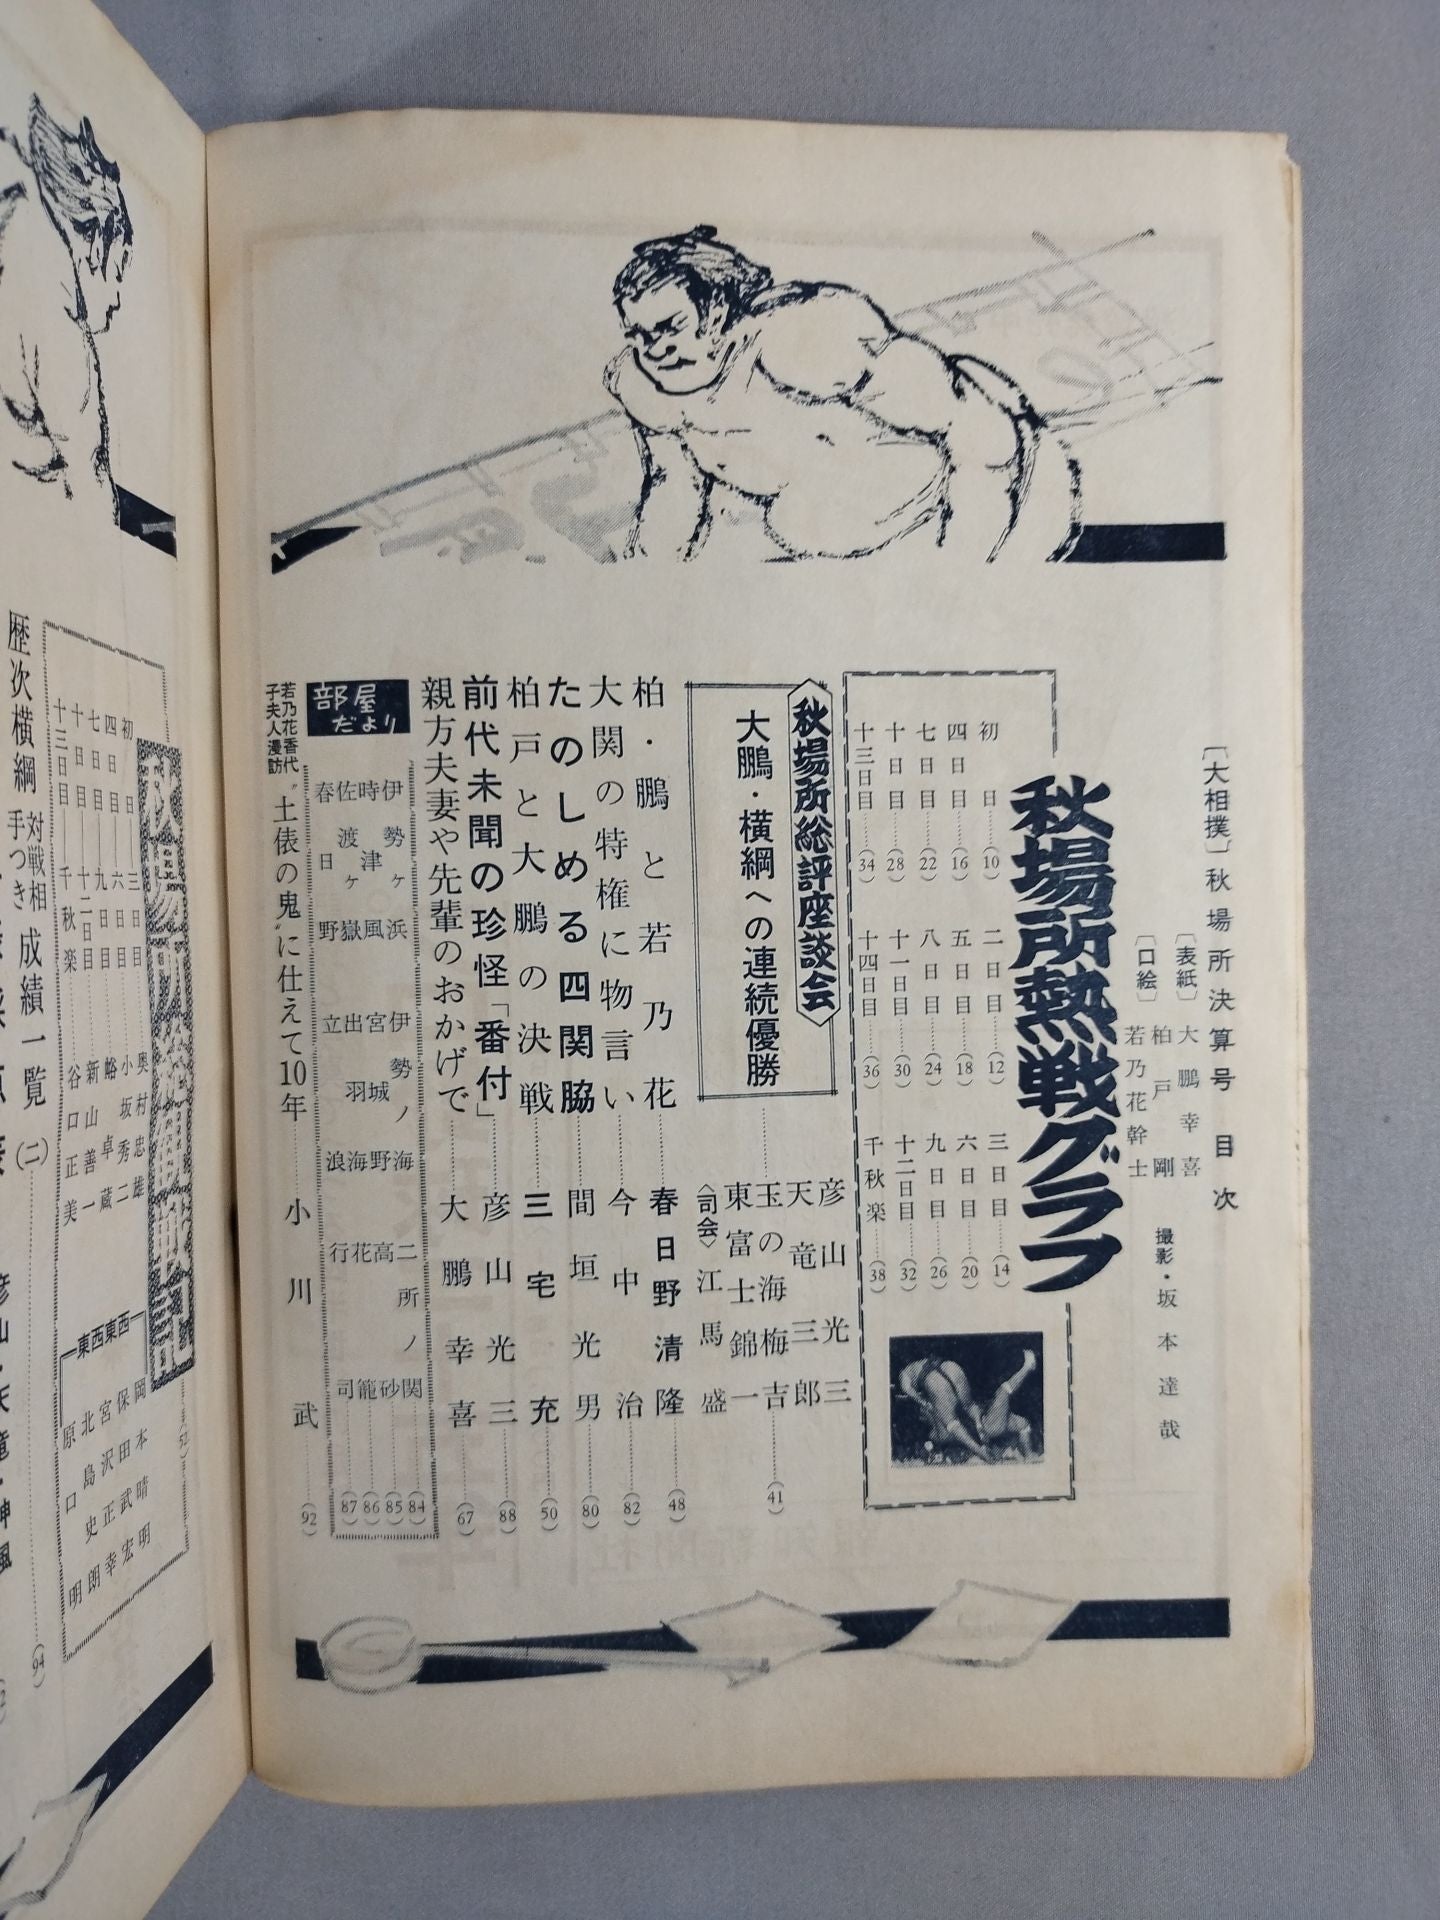 〔大相撲〕秋場所決算号 目次
〔表紙〕大鵬幸喜
柏戸剛
〔口絵〕若乃花幹士
撮影・坂本達哉
秋場所熱戦グラフ
初日……(10) 二日目……(12) 三日目……(14)
四日目……(16) 五日目……(18) 六日目……(20)
七日目……(22) 八日目……(24) 九日目……(26)
十日目……(28) 十一日目……(30) 十二日目……(32)
十三日目……(34) 十四日目……(36) 千秋楽……(38)
秋場所総評座談会
大鵬・横綱への連続優勝……(41)
彦山光三
天竜三郎
玉の海梅吉
東富士錦一
〈司会〉江馬盛
柏・鵬と若乃花……春日野清隆……(48)
大関の特権に物言い……今中治……(82)
たのしめる四関脇……間垣光男……(80)
柏戸と大鵬の決戦……三宅充……(50)
前代未聞の珍怪「番付」……彦山光三……(88)
親方夫妻や先輩のおかげで……大鵬幸喜……(67)
部屋だより
伊勢ヶ浜 伊勢ノ海 二所ノ関……(84)
時津風 宮城野 高砂……(85)
佐渡ヶ嶽 出羽海 花籠……(86)
春日野 立浪 行司……(87)
若乃花香代子夫人漫訪 “土俵の鬼”に仕えて10年……小川武……(92)
初日――三日目……奥村忠雄
四日目――六日目……小坂秀二
七日目――九日目……
十日目――十二日目……新山善一
十三日目――千秋楽……谷口正美
(52)
東西東西
岡本晴明
保田武宏
宮沢正幸
北島史朗
原口明
歴次横綱 対戦相手つき 成績一覧(二)……(94)